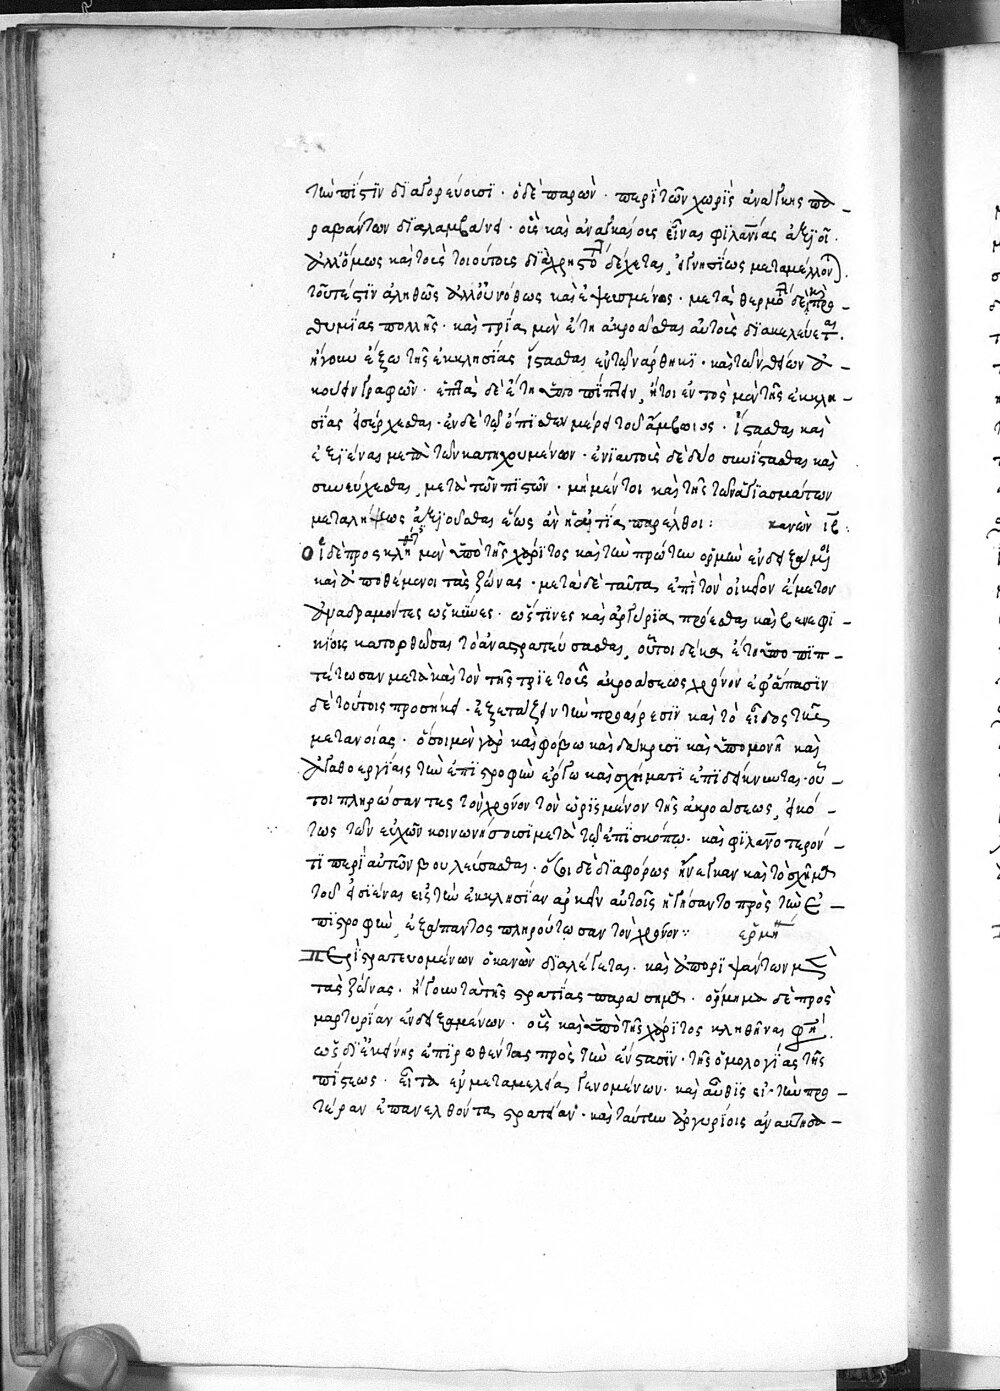 τὴν πίστιν διαγορεύουσι · ὁ δὲ παρὼν · περὶ τῶν χωρὶς ἀνάγκης πα-
ραβάντων διαλαμβάνει · οὓς καὶ ἀναγκαίους εἶναι φιλανθρωπίας ἀξιοῖ ·
ἀλλ' ὅμως καὶ τοὺς τοιούτους δέχεται, εἰ γνησίως μεταμέλλονται
τουτέστιν ἀληθῶς ἀλλ' οὐ νόθως καὶ ἐψευσμένως · μετὰ θερμότητος δὲ καὶ προ-
θυμίας πολλῆς · καὶ τρία μὲν ἔτη ἀκροᾶσθαι αὐτοὺς διακελεύεται ·
ἤγουν ἔξω τῆς ἐκκλησίας ἵστασθαι ἐν τῷ νάρθηκι · καὶ τῶν θείων ἀ-
κούειν γραφῶν · ἑπτὰ δὲ ἔτη ὑποπίπτειν, ἤτοι ἐντὸς μὲν τῆς ἐκκλη-
σίας εἰσέρχεσθαι · ἐν δὲ τῷ ὄπισθεν μέρει τοῦ ἄμβωνος · ἵστασθαι καὶ
ἐξιέναι μετὰ τῶν κατηχουμένων · ἐνιαυτοὺς δὲ δύο συνίστασθαι καὶ
συνεύχεσθαι, μετὰ τῶν πιστῶν · μὴ μέντοι καὶ τῆς τῶν ἁγιασμάτων
μεταλήψεως ἀξιοῦσθαι ἕως ἂν ἡ διετία παρέλθοι : κανὼν ιβ :
Οἱ δὲ προσκληθέντες μὲν ὑπὸ τῆς χάριτος καὶ τὴν πρώτην ὁρμὴν ἐνδειξάμενοι
καὶ ἀποθέμενοι τὰς ζώνας · μετὰ δὲ ταῦτα, ἐπὶ τὸν οἰκεῖον ἔμετον
ἀναδραμόντες ὡς κύνες · ὥς τινας καὶ ἀργύρια προέσθαι καὶ βενεφι-
κίοις κατορθῶσαι τὸ ἀναστρατεύσασθαι, οὗτοι δέκα ἔτη ὑποπιπ-
τέτωσαν μετὰ καὶ τὸν τῆς τριετοῦς ἀκροάσεως χρόνον ἐφ' ἅπασιν
δὲ τούτοις προσήκει · ἐξετάζειν τὴν προαίρεσιν καὶ τὸ εἶδος τῆς
μετανοίας · ὅσοι μὲν γὰρ καὶ φόβῳ καὶ δάκρυσι καὶ ὑπομονῇ καὶ
ἀγαθοεργίαις τὴν ἐπιστροφὴν ἔργῳ καὶ σχήματι ἐπιδείκνυνται · οὗ-
τοι πληρώσαντες τὸν χρόνον τὸν ὡρισμένον τῆς ἀκροάσεως, εἰκό-
τως τῶν εὐχῶν κοινωνήσουσι μετὰ τῷ ἐπισκόπῳ · καὶ φιλανθρωπότερόν
τι περὶ αὐτῶν βουλεύσασθαι · ὅσοι δὲ διαφόρως ἤνεγκαν καὶ τὸ σχῆμα
τοῦ εἰσιέναι εἰς τὴν ἐκκλησίαν ἀρκεῖν αὐτοῖς ἡγήσαντο πρὸς τὴν ἐ-
πιστροφὴν, ἐξάπαντος πληρούτωσαν τὸν χρόνον : ἑρμη
Περὶ στρατευομένων ὁ κανὼν διαλέγεται · καὶ ἀπορριψάντων μὲν
τὰς ζώνας · ἤγουν τὰ τῆς στρατίας παράσημα · ὅρμημα δὲ πρὸς
μαρτυρίαν ἐνδειξαμένων · οὓς καὶ ὑπὸ τῆς χάριτος κληθῆναι φησὶ ·
ὡς δι' ἐκείνης ἐπιρρωθέντας πρὸς τὴν ἔνστασιν · τῆς ὁμολογίας τῆς
πίστεως · εἶτα ἐν μεταμελείᾳ γενομένων · καὶ αὖθις εἰς τὴν προ-
τέραν ἐπανελθόντας στρατείαν · καὶ ταύτην ἀργυρίοις ἀνακτησα-